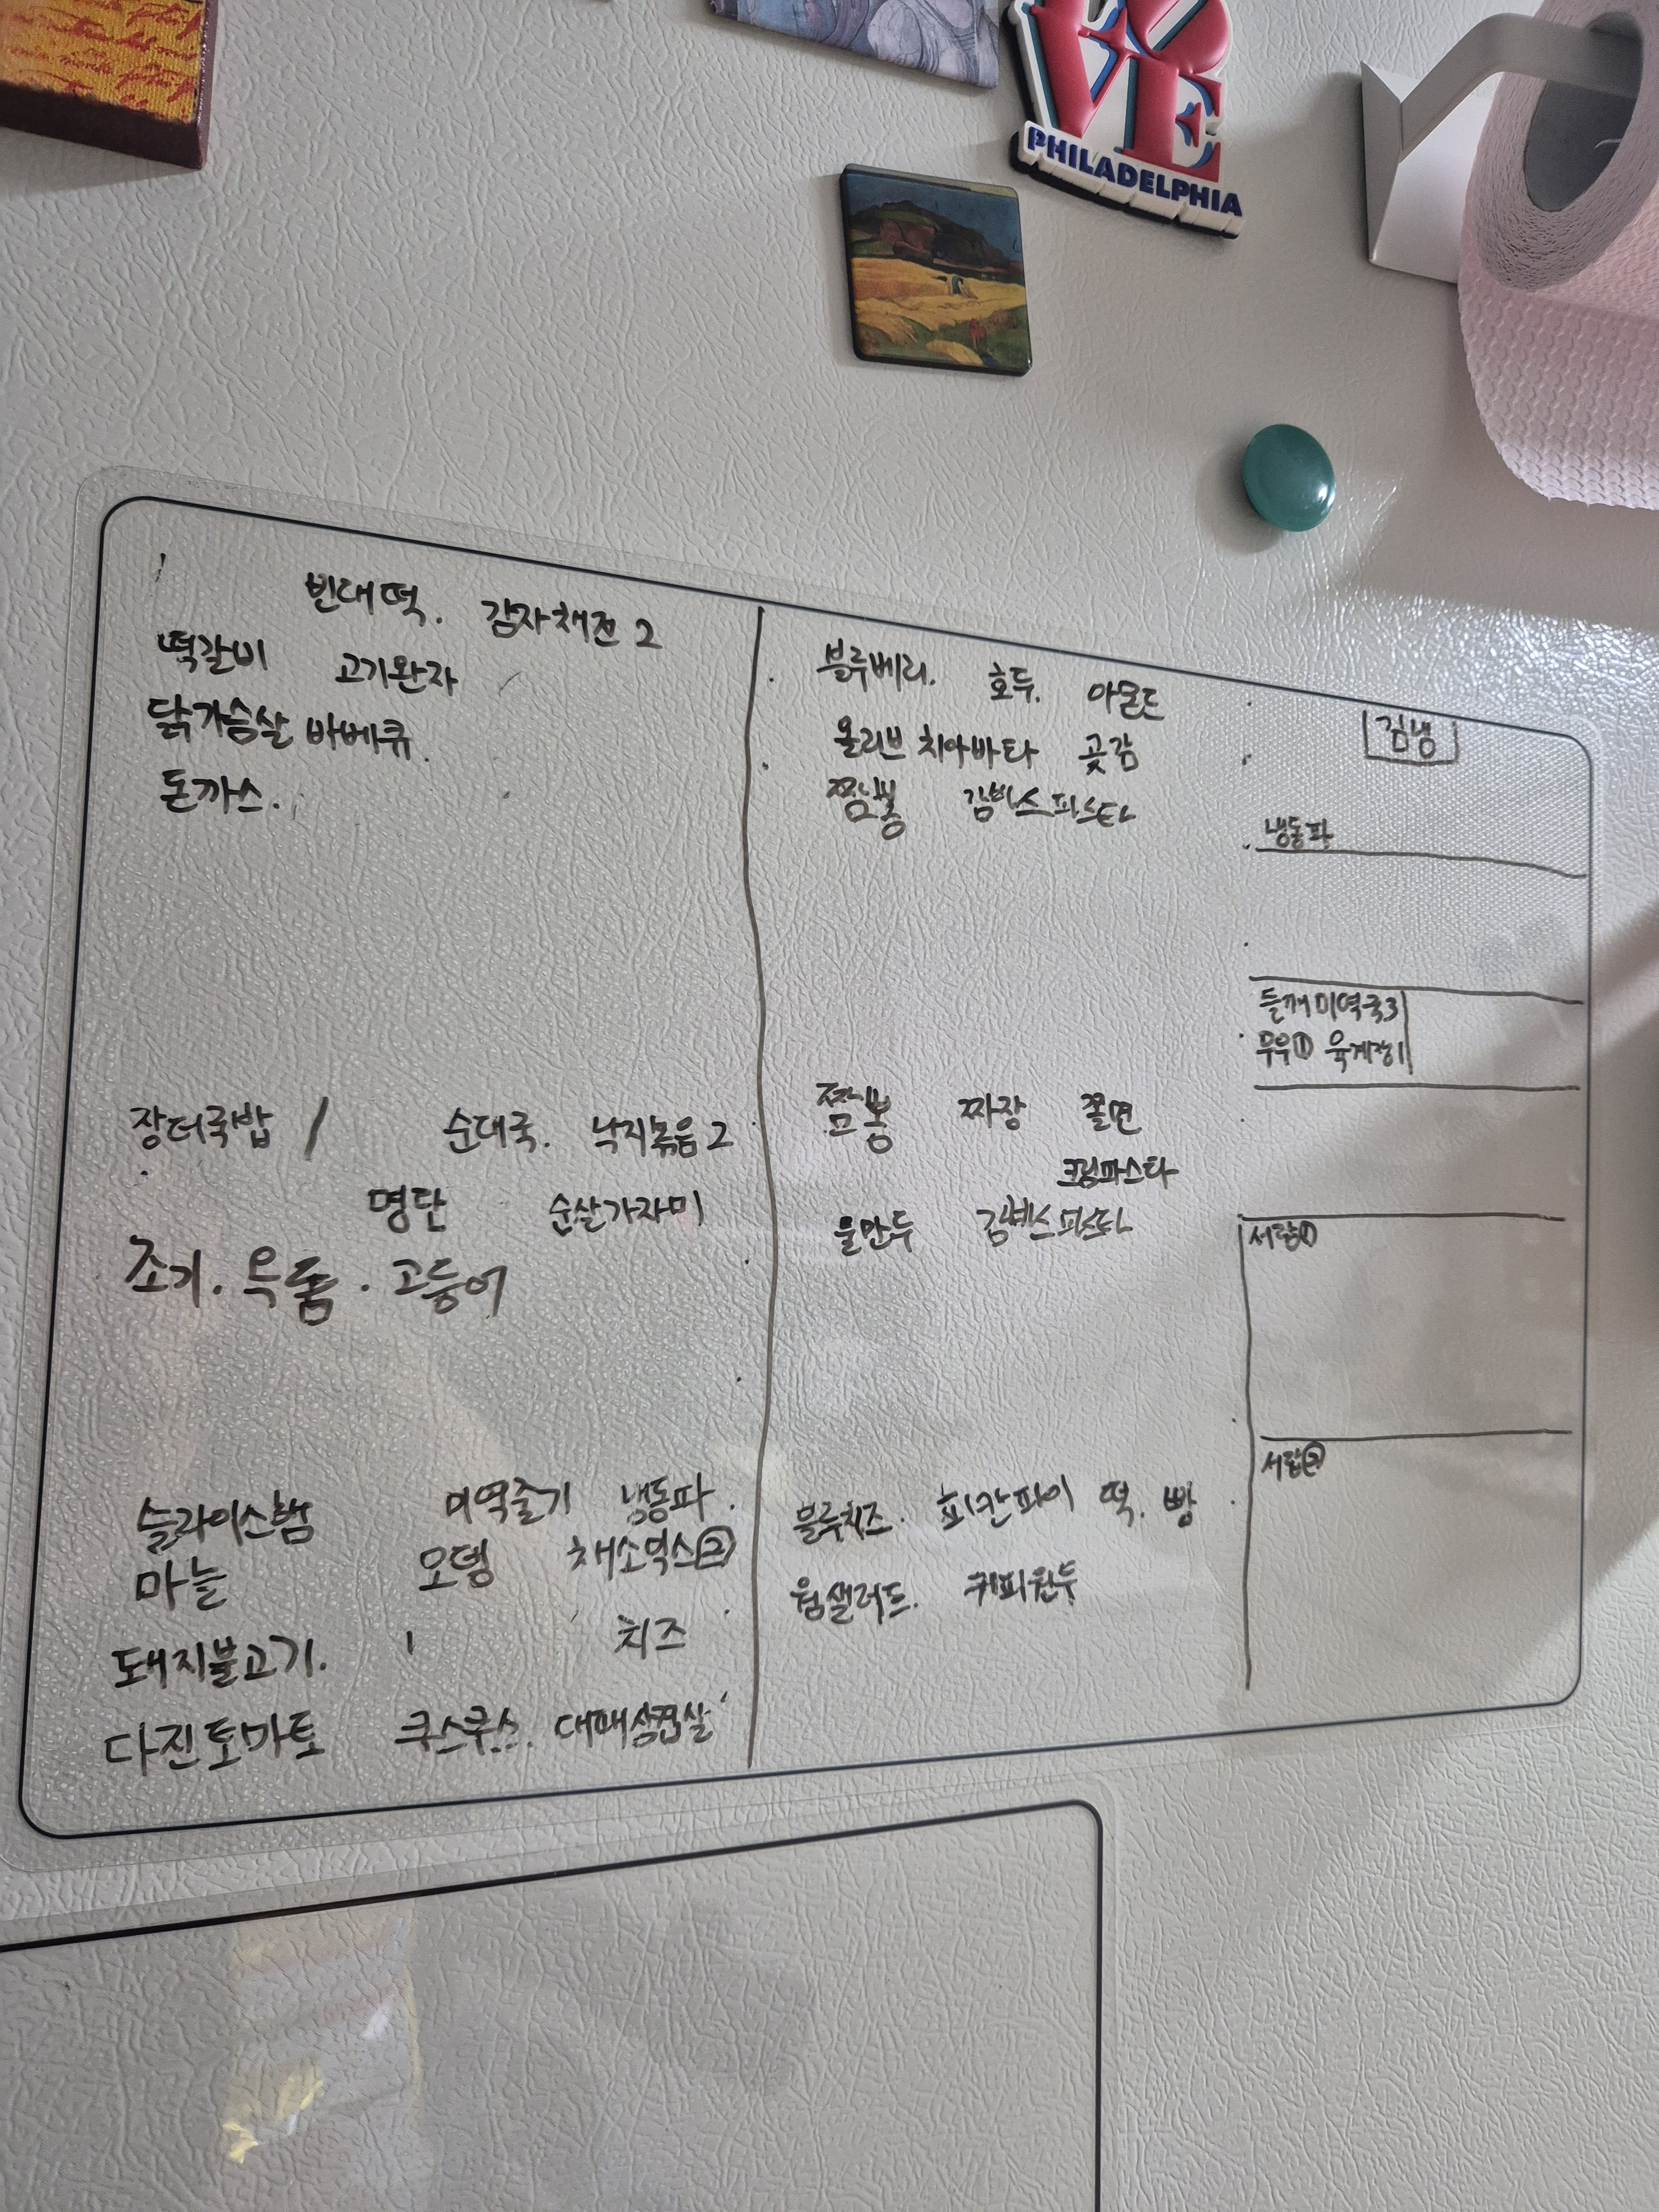 VE
PHILADELPHIA
빈대떡. 감자채전 2
떡갈비 고기완자
닭가슴살 바베큐.
돈까스.
장터국밥 / 순대국. 낙지볶음 2
명란 순살가자미
조기. 옥돔. 고등어
슬라이스햄 미역줄기 냉동파.
마늘 오뎅 채소믹스②
돼지불고기. 치즈
다진토마토 쿠스쿠스. 대패삼겹살
블루베리. 호두. 아몬드
올리브 치아바타 곶감
짬뽕 감바스파스타
짬뽕 짜장 쫄면
크림파스타
물만두 감바스파스타
블루치즈. 피칸파이 떡. 빵
웜샐러드. 커피원두
김냉
냉동파
들깨미역국3
무우① 육개장1
서랍①
서랍②